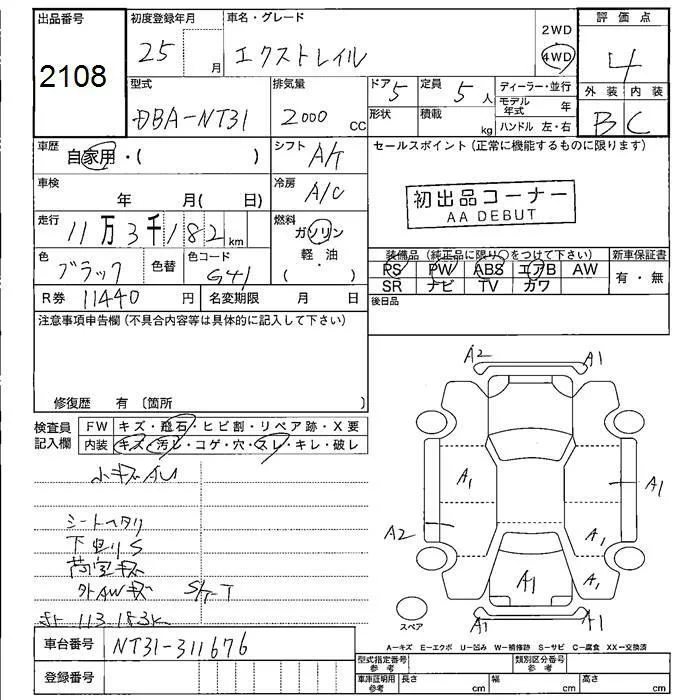 出品番号
2108
初度登録年月
25 月
車名・グレード
エクストレイル
2WD
4WD
評価点
4
外装 内装
B C
型式
DBA-NT31
排気量
2000 CC
ドア 5
定員 5 人
形状
積載 kg
ディーラー・並行
モデル年式 年
ハンドル 左・右
車歴
自家用・( )
シフト A/T
セールスポイント (正常に機能するものに限ります)
初出品コーナー
AA DEBUT
車検 年 月( 日)
冷房 A/C
走行 11万3千182 km
燃料
ガソリン
軽・油
( )
色 ブラック
色替
色コード G41
装備品 (純正品に限り○をつけて下さい)
新車保証書
PS PW ABS エアB AW
SR ナビ TV ガワ
有・無
R券 11440 円
名変期限 月 日
後日品
注意事項申告欄 (不具合内容等は具体的に記入して下さい)
修復歴 有 〔箇所 〕
検査員
記入欄
FW キズ・飛石・ヒビ割・リペア跡・X要
内装 キズ・汚レ・コゲ・穴・スレ・キレ・破レ
小キズAU
シートヘタリ
下廻りS
荷室キズ
外AWキズ S/T-T
113.183K
A2 A1
A1 A1 A1
A2 A1
A1 A1
A1 A1
スペア
A-キズ E-エクボ U-凹み W-補修跡 S-サビ C-腐食 XX-交換済
車台番号 NT31-311676
登録番号
型式指定番号
参考
類別区分番号
参考
車庫証明用
参考
長さ cm
幅 cm
高さ cm